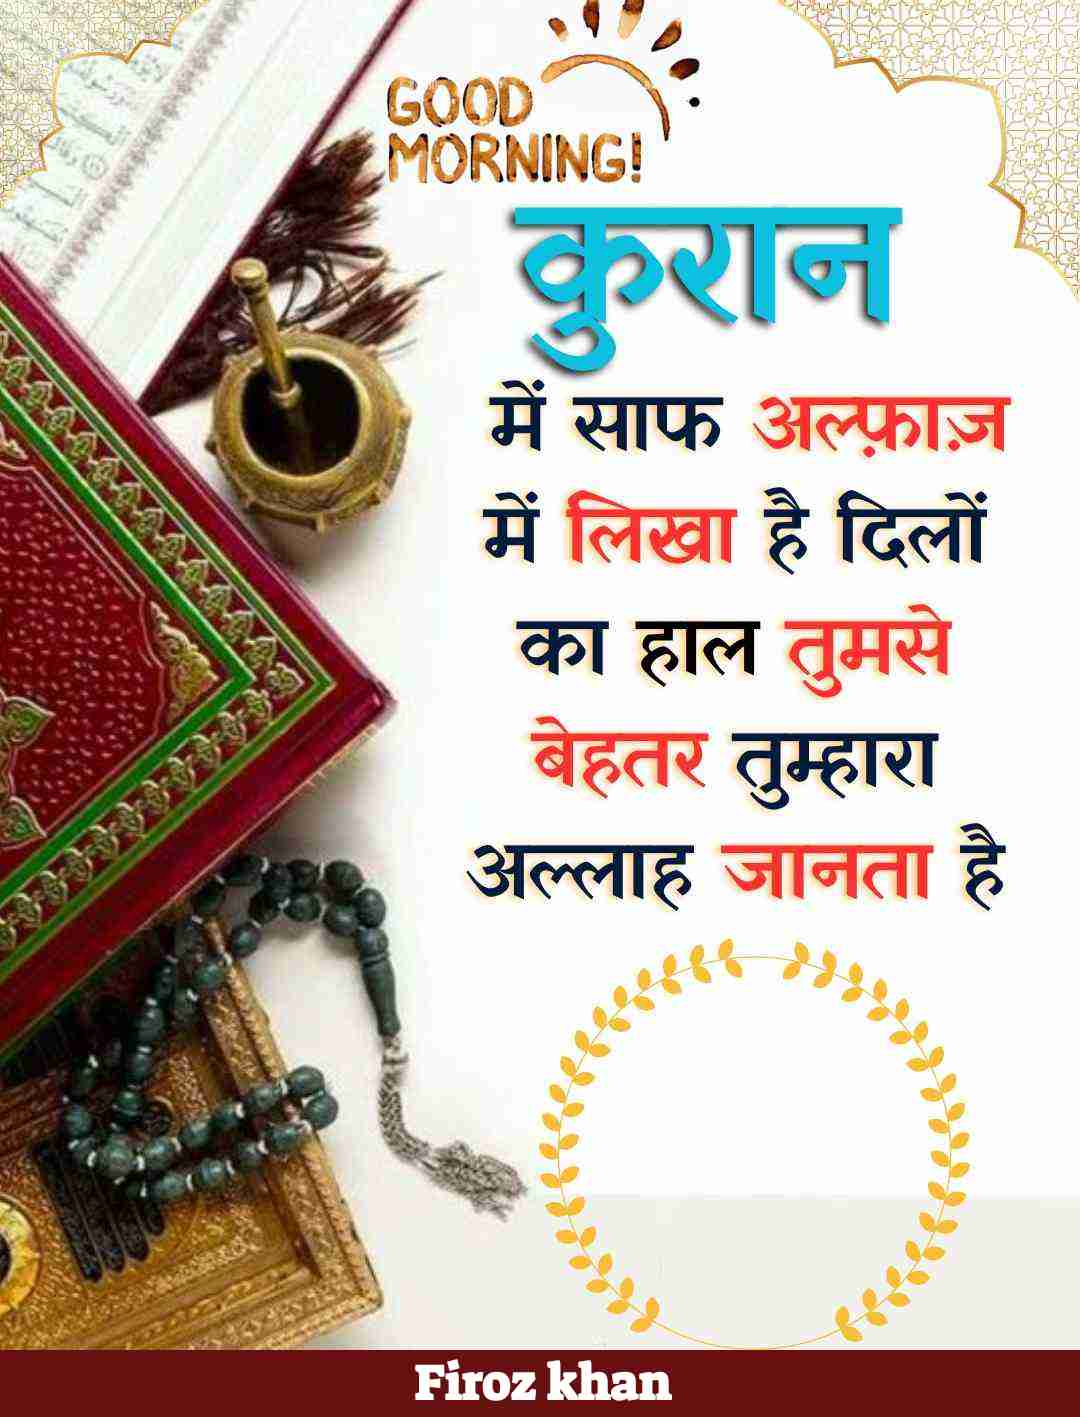 GOOD
MORNING!
कुरान
में साफ अल्फ़ाज़
में लिखा है दिलों
का हाल तुमसे
बेहतर तुम्हारा
अल्लाह जानता है
Firoz khan